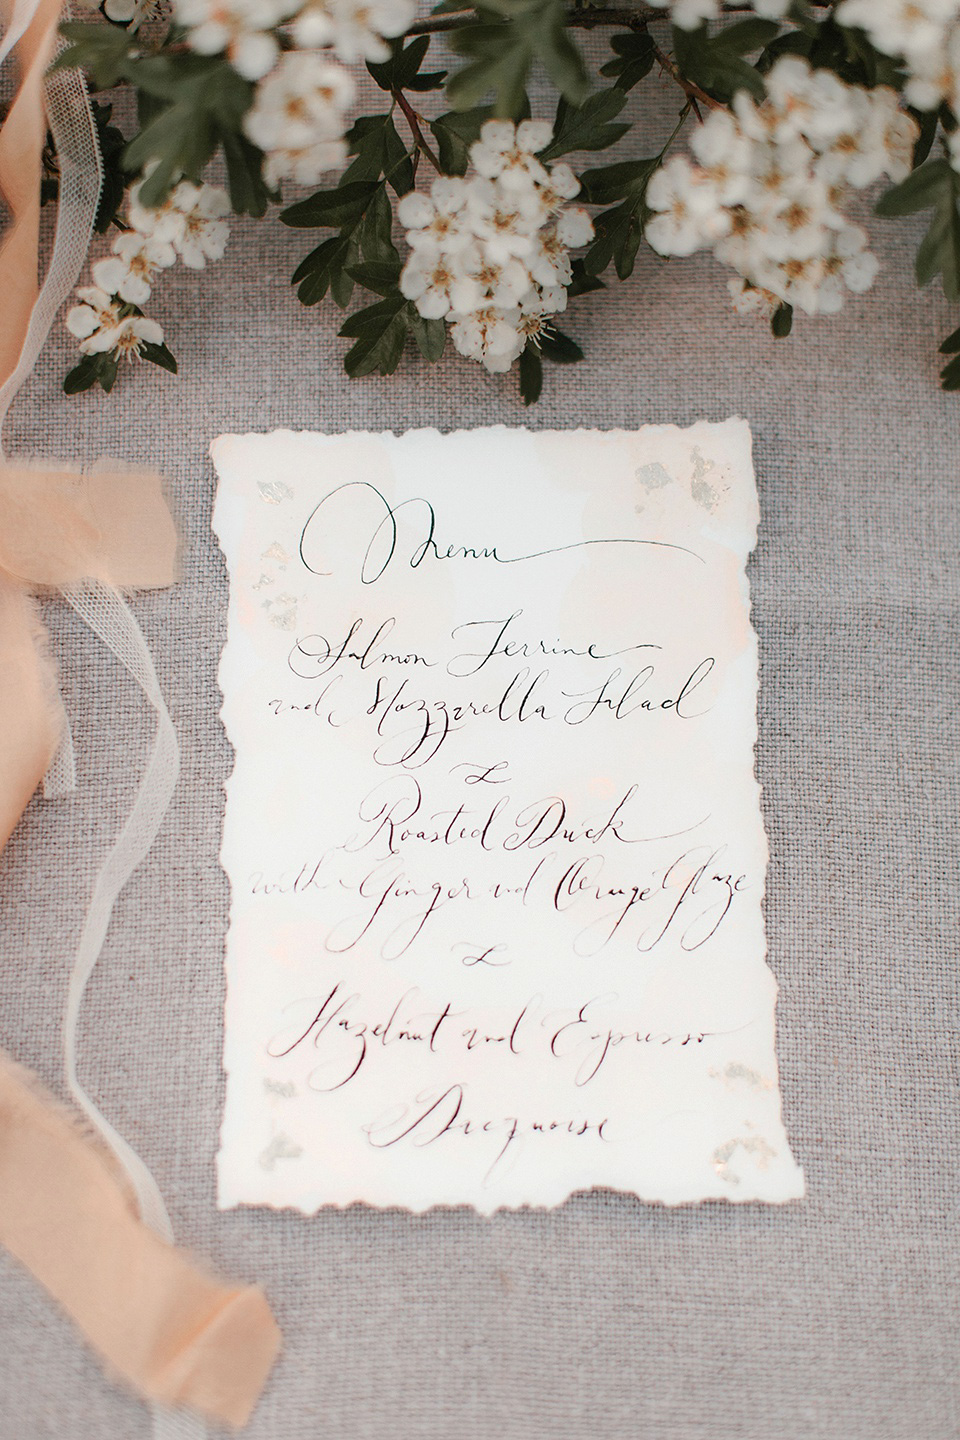 Menu
Salmon Terrine
and Mozzarella Salad
Roasted Duck
with Ginger and Orange Glaze
Hazelnut and Espresso
Dacquoise